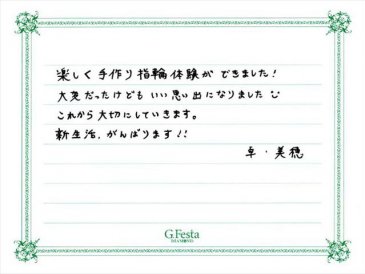 楽しく手作り指輪体験ができました！
大変だったけどもいい思い出になりました
これから大切にしていきます。
新生活、がんばります!!
卓・美穂
G.Festa
DIAMOND